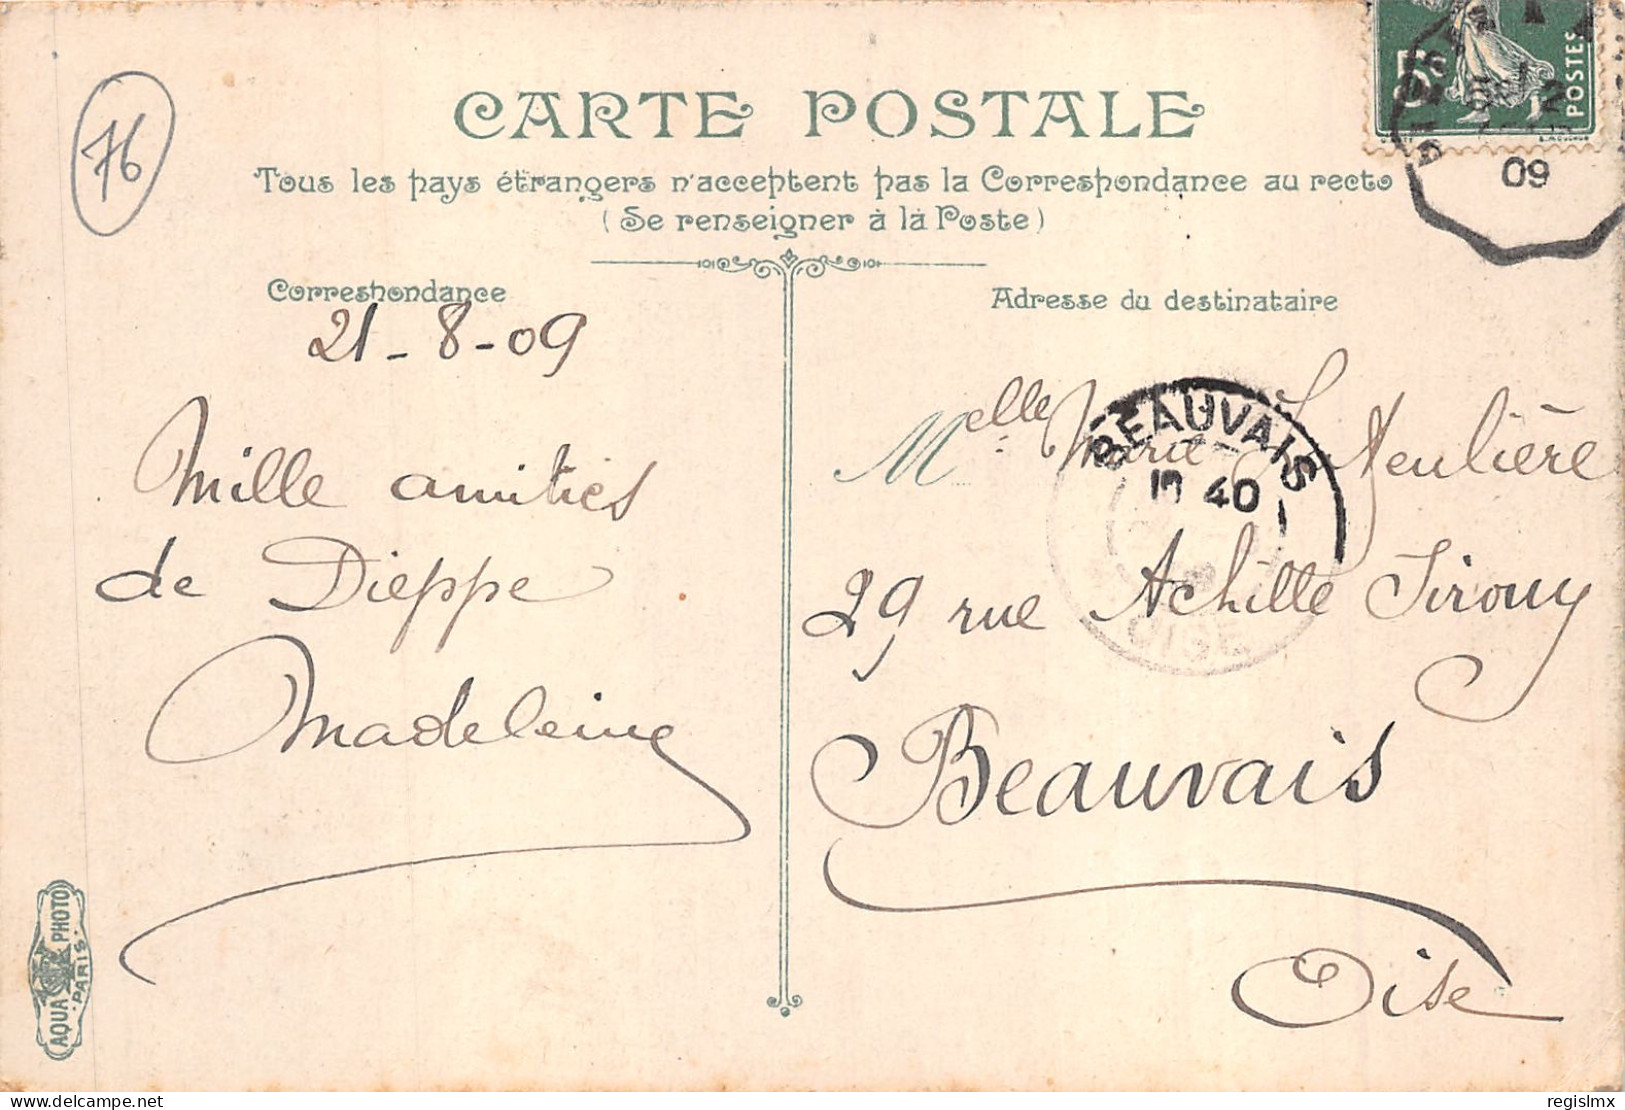 76
CARTE POSTALE
Tous les pays étrangers n'acceptent pas la Correspondance au recto
(Se renseigner à la Poste)
Correspondance
21-8-09
Mille amitiés
de Dieppe
Madeleine
AQUA PHOTO
PARIS
Adresse du destinataire
Melle Marie
29 rue Achille Sirouy
Beauvais
Oise
5c
POSTES
09
BEAUVAIS
40
OISE
delcampe.net
regislmx